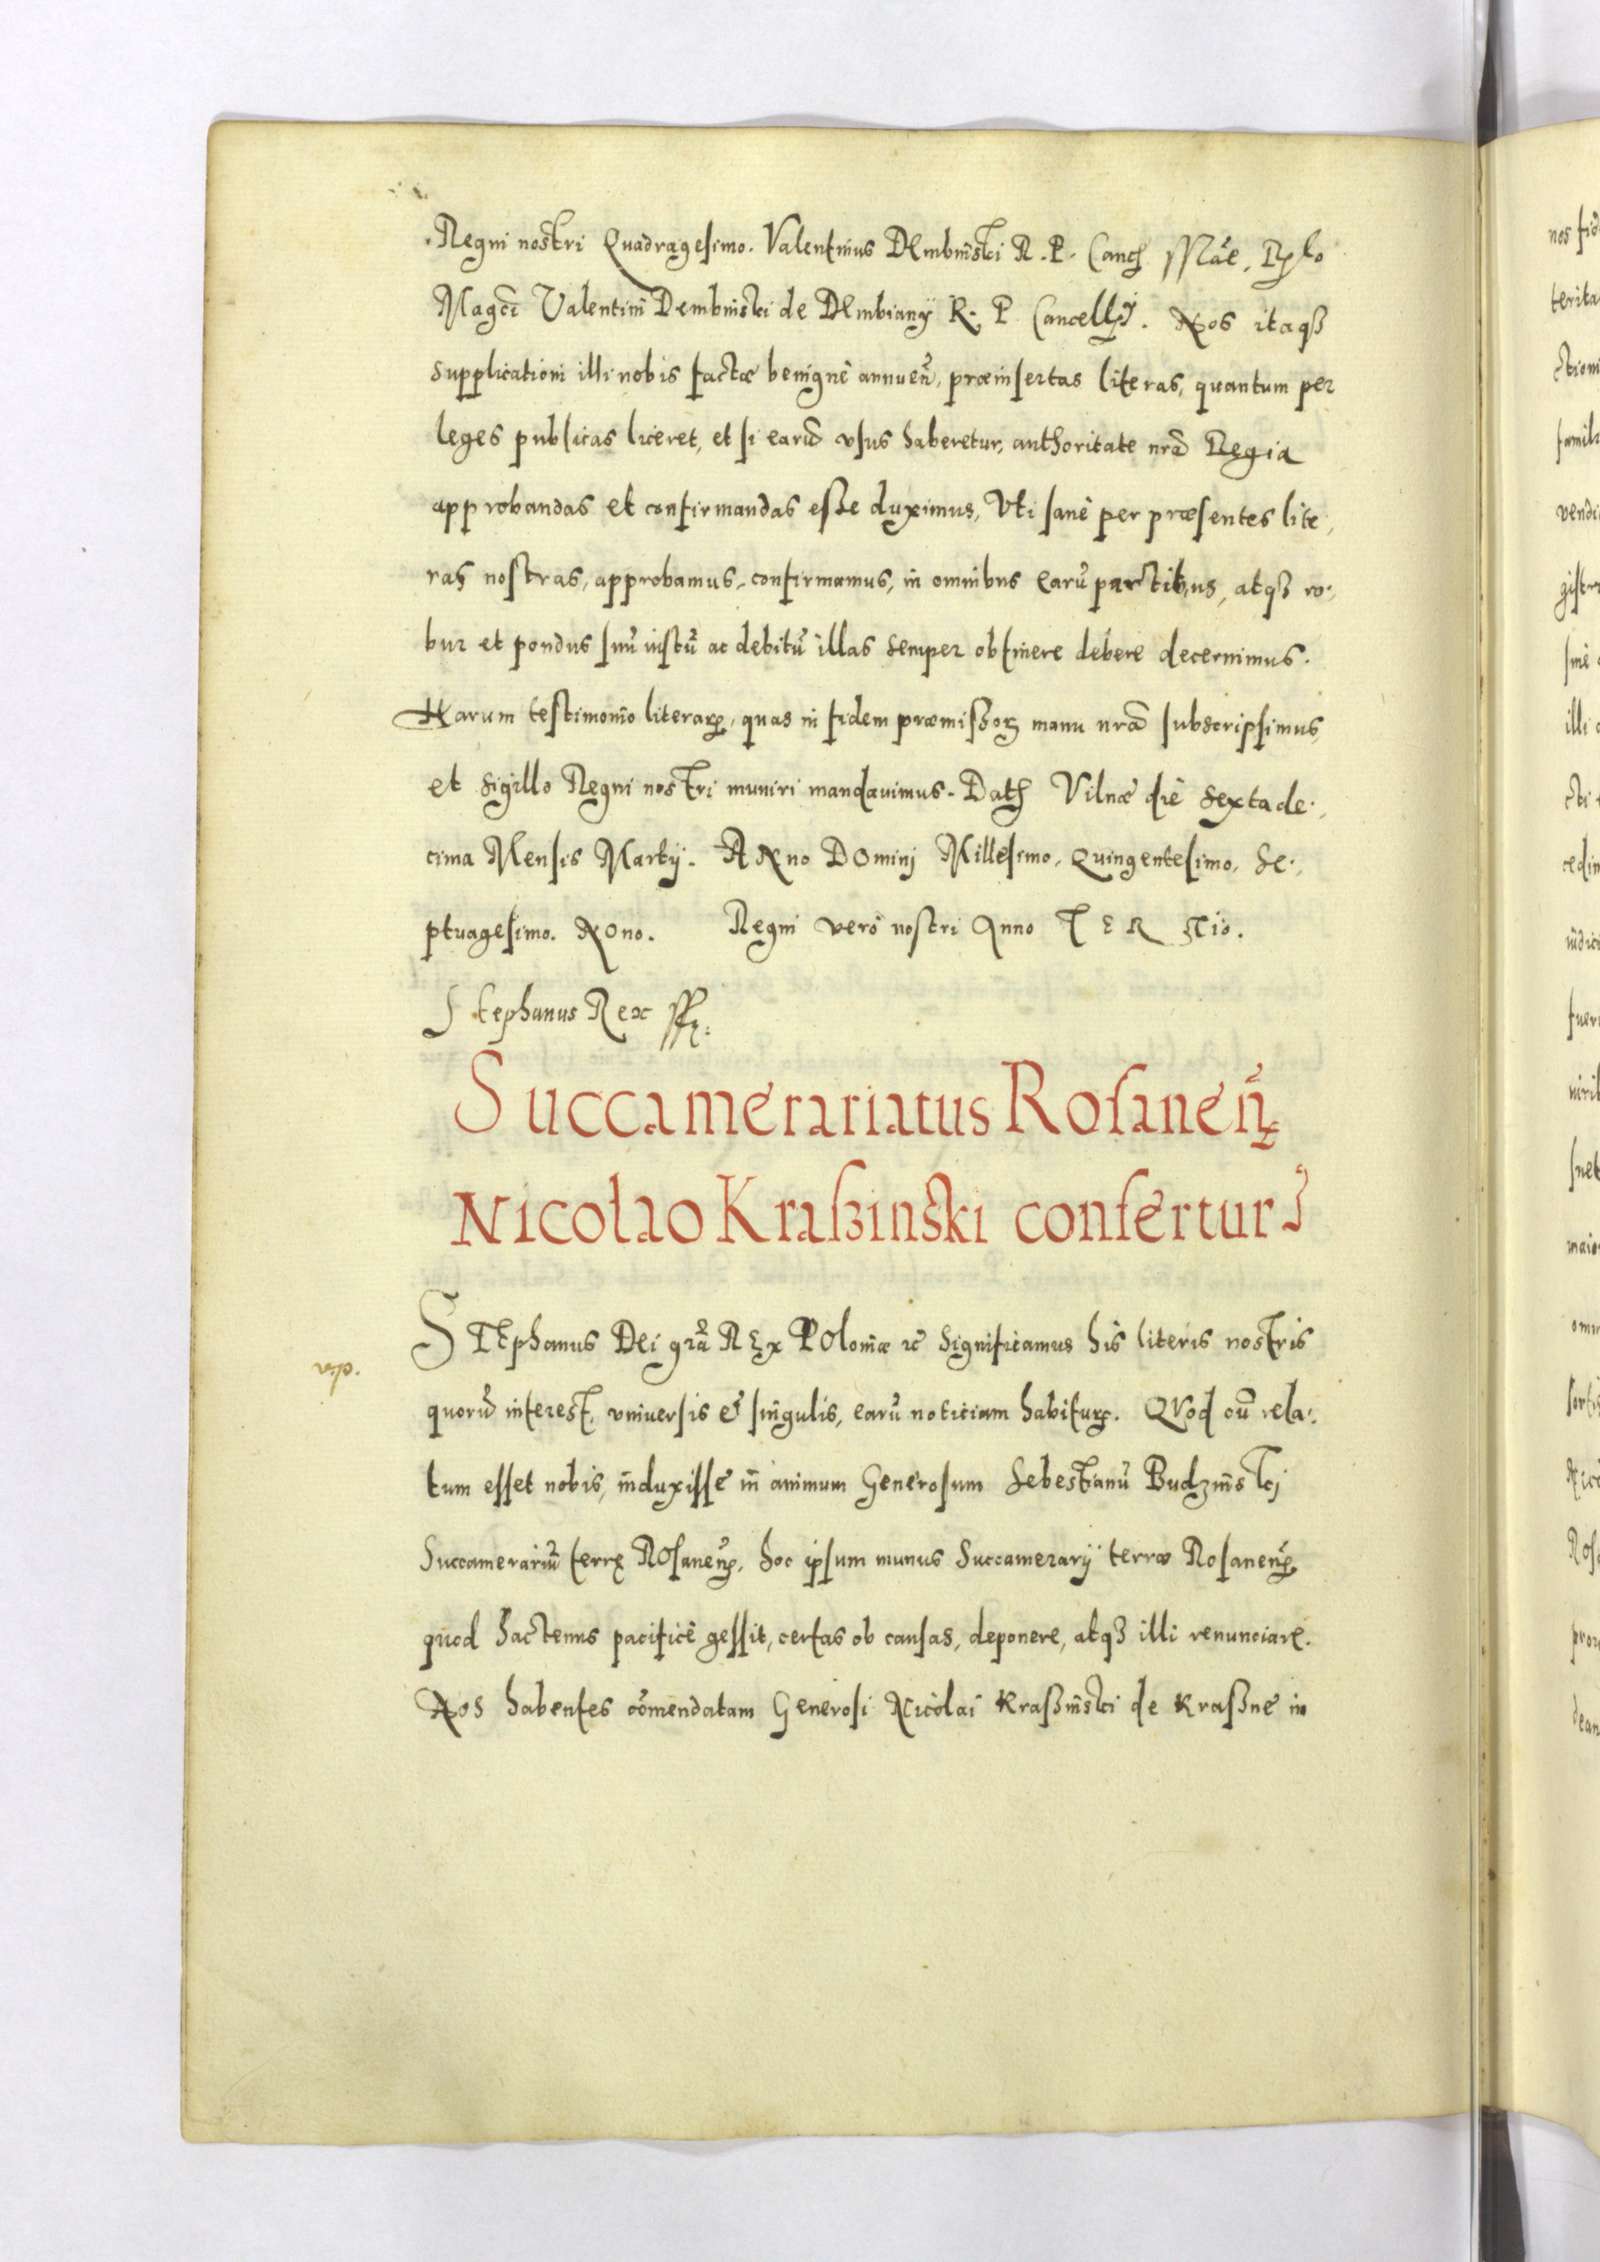 Regni nostri Quadragesimo. Valentinus DEmbinski R. P. Canc
Magci Valentini Dembinski de DEmbiany R. P. Cancellrij. Nos itaqȝ
supplicationi illi nobis factæ benignè annueñ, præinsertas literas, quantum per
leges publicas liceret, et si earũ vsus haberetur, authoritate nrã Regia
approbandas et confirmandas esse duximus, Vti sanè per præsentes lite,
ras nostras, approbamus, confirmamus, in omnibus earũ partibus, atqȝ ro,
bur et pondus suũ iustũ ac debitũ illas semper obtinere debere decernimus.
Harum testimonio literarꝝ, quas in fidem præmissorꝝ manu nrã subscripsimus,
et sigillo Regni nostri muniri mandavimus. Dat Vilnæ die sexta de,
cima Mensis Martij. ANno DOmini Millesimo, Quingentesimo, Se,
ptuagesimo. NOno. Regni verò nostri Anno TERTio.
Stephanus Rex
Succamerariatus Rosaneñ
Nicolao Kraßinski confertur
STEphanus DEi grã REx POloniæ ꝛc̃ Significamus his literis nostris
quorũ interest, vniversis et singulis, earũ noticiam habiturꝭ. QVod cũ rela,
tum esset nobis, induxisse in animum Generosum Sebestianũ Budzinski
Succamerariũ terrę ROsaneñ, hoc ipsum munus Succamerarij terræ Rosaneñ,
quod hactenus pacificè gessit, certas ob causas, deponere, atqȝ illi renunciare.
NOs habentes cõmendatam Generosi Nicolai Kraßinski de Kraßne in
nos fid
terita
ctioni
famili
vendi
gistr
sinè
illi
cti
cedim
indici
fueri
virib
maio
omn
Nico
Roso
proz
dean